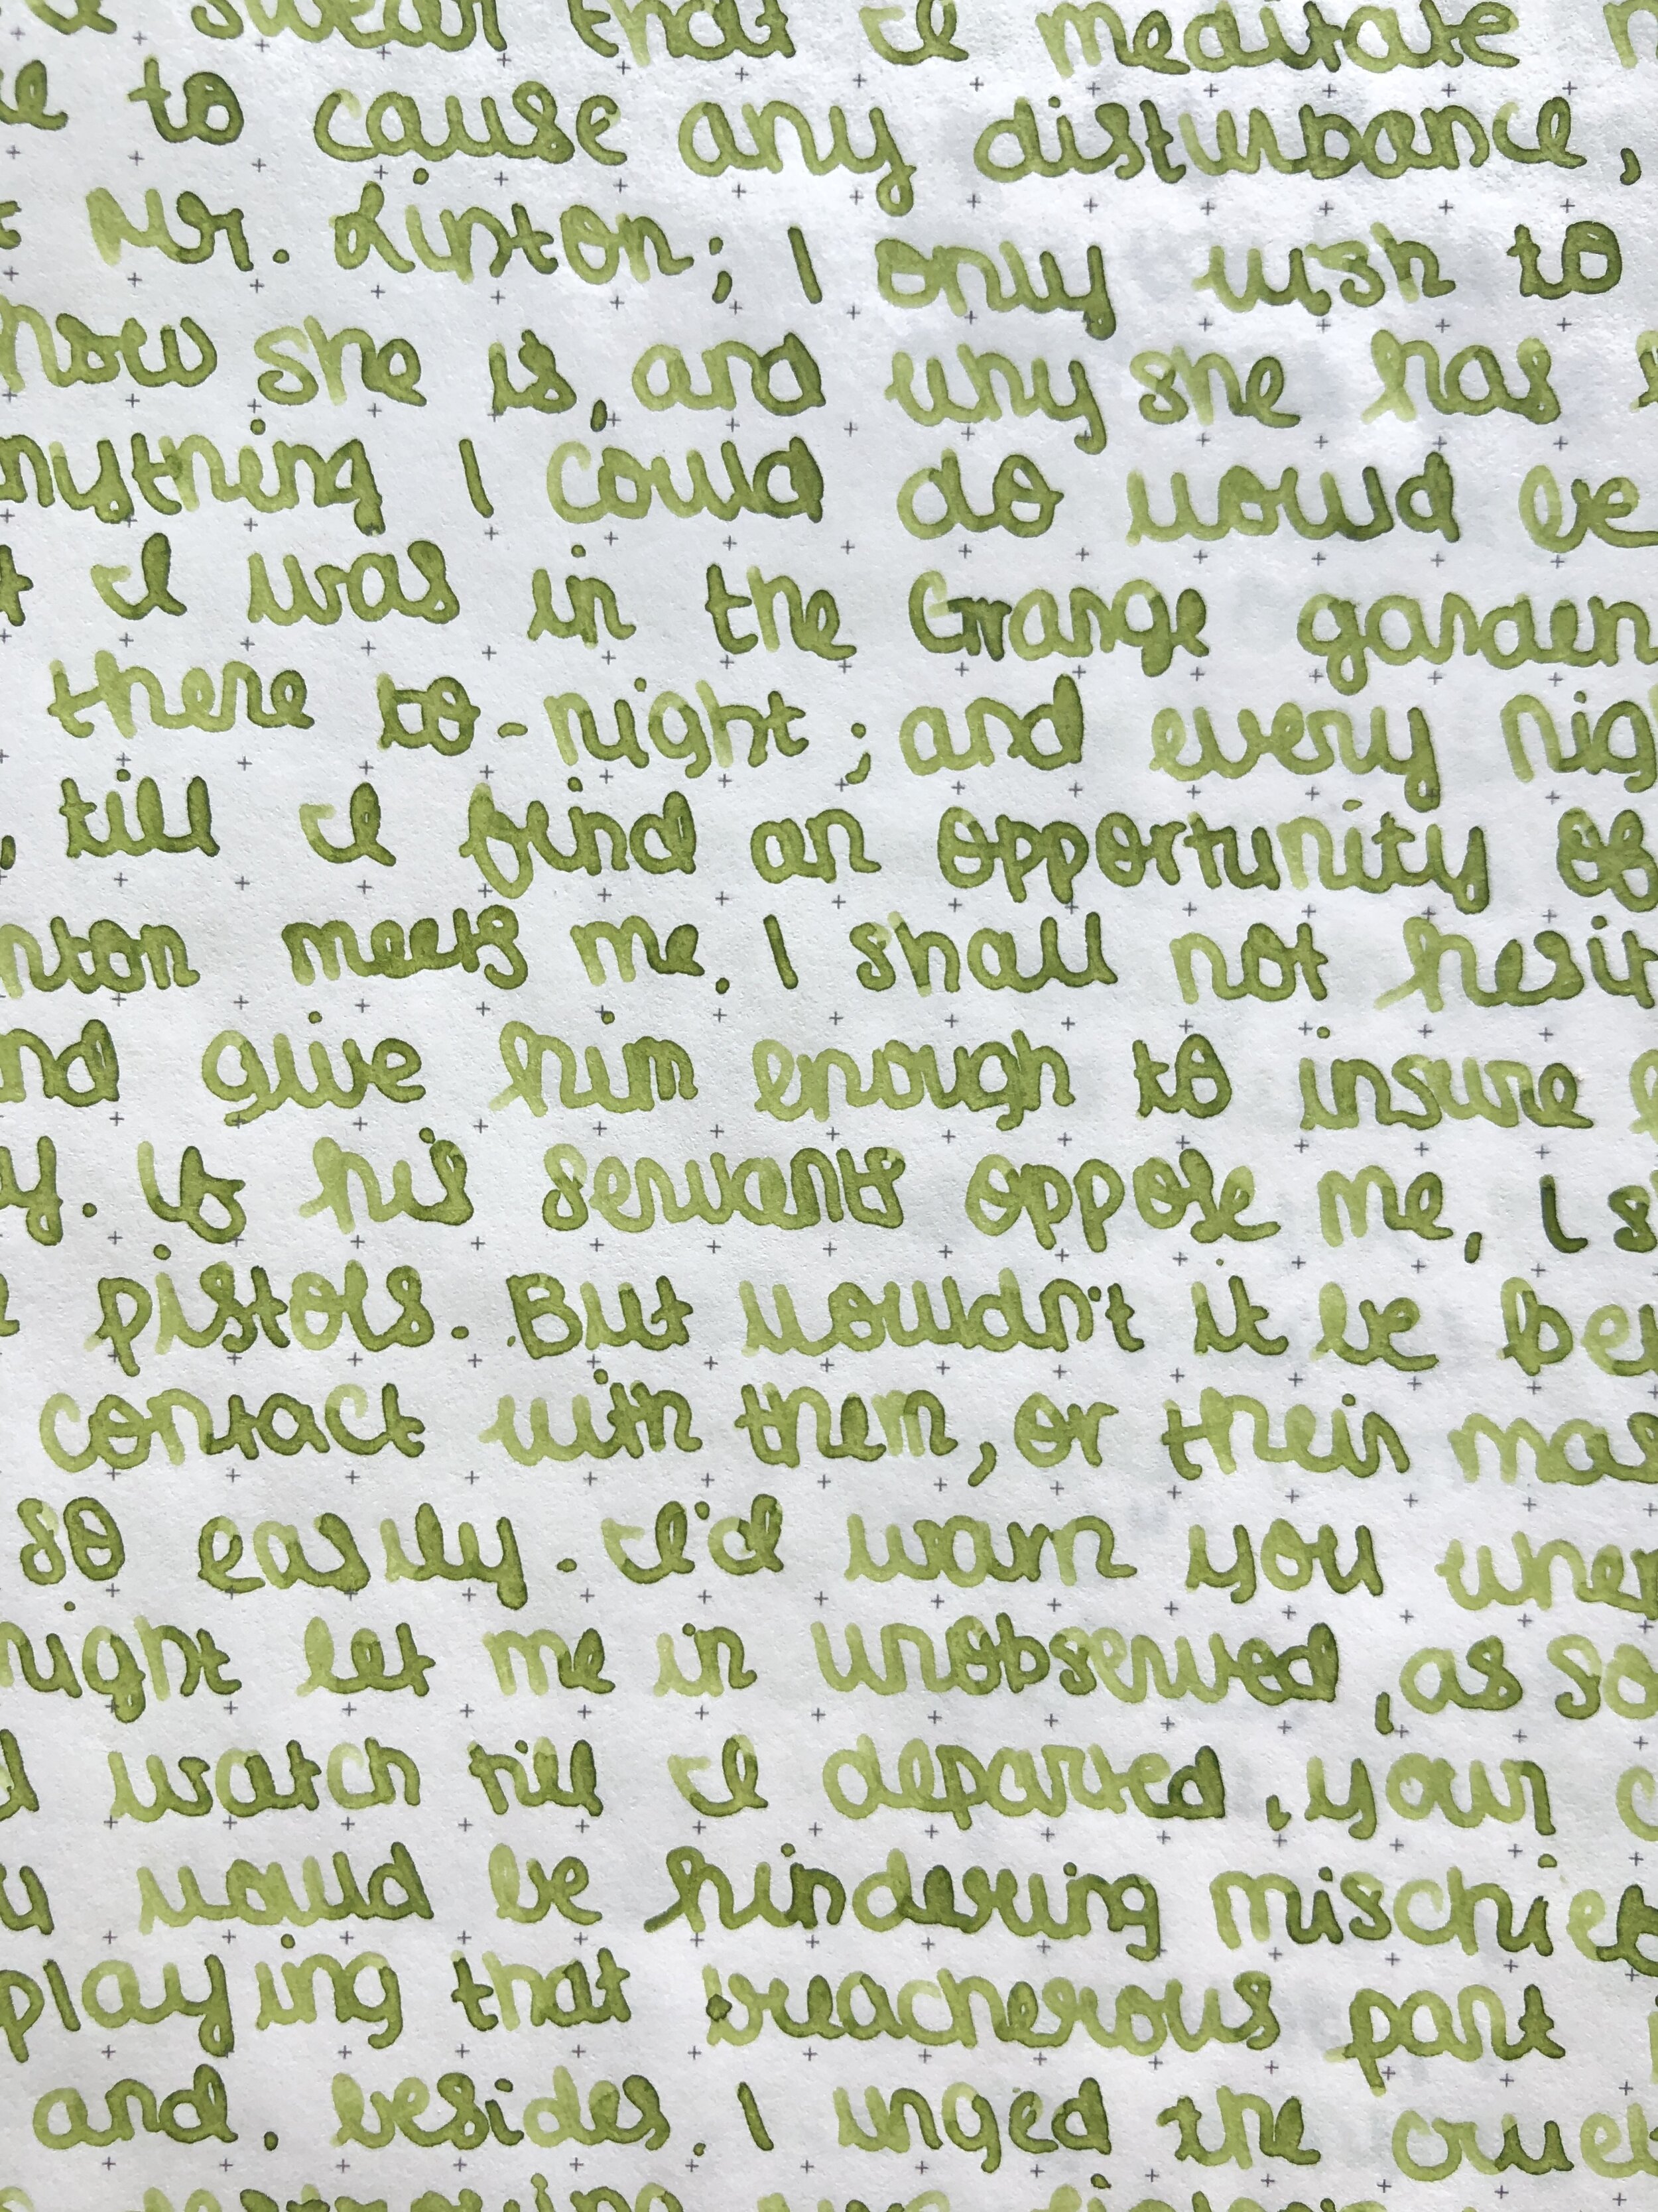 I swear that I meditate
to cause any disturbance,
Mr. Linton; I only wish to
how she is, and why she has
nything I could do would be
I was in the Grange garden
there to-night; and every nig
, till I find an opportunity of
nton meets me. I shall not hesit
nd give him enough to insure
y. If his servants oppose me, I s
pistols. But wouldn't it be be
contact with them, or their mas
so easily. I'd warn you when
might let me in unobserved, as so
d watch till I departed, your c
u would be hindering mischief
playing that treacherous part
and, besides, I urged the cruel